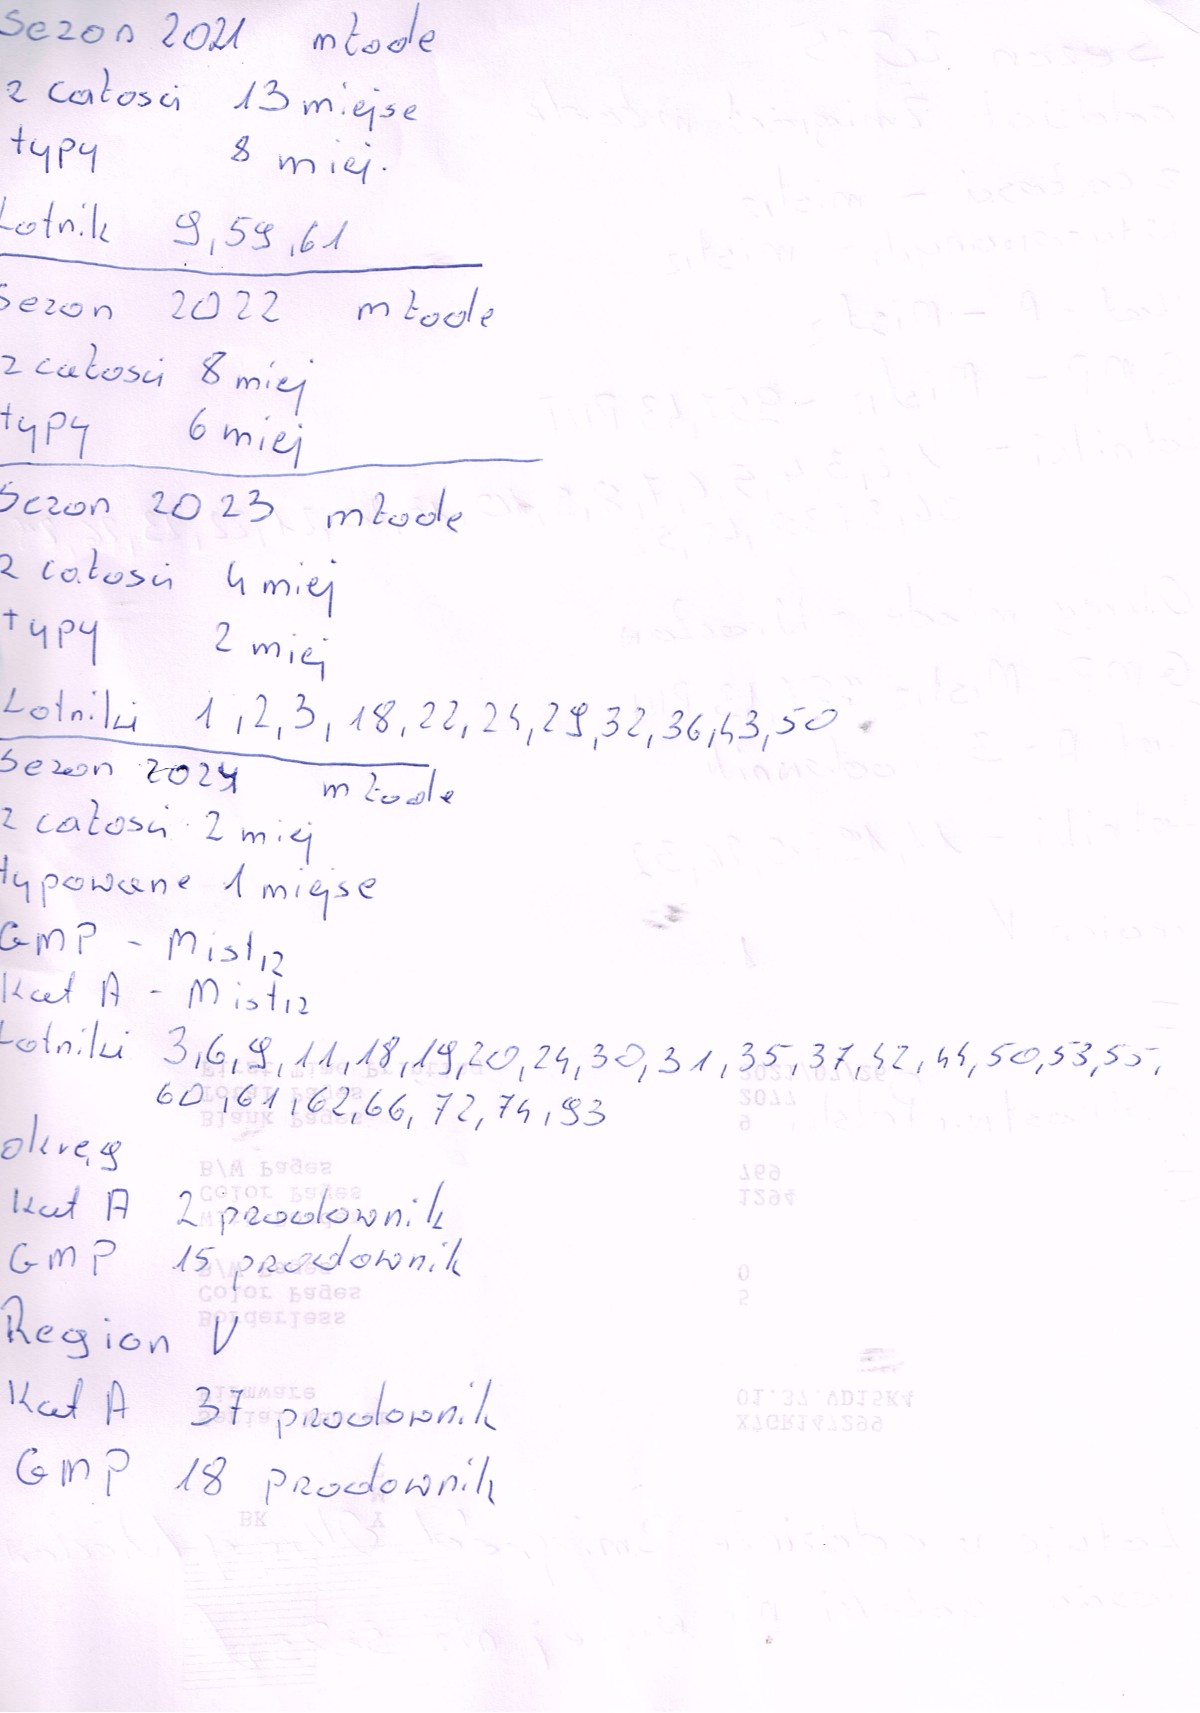 Sezon 2021 młode
z całości 13 miejse
typy 8 miej.
Lotnik 9, 59, 61
Sezon 2022 młode
z całości 8 miej
typy 6 miej
Sezon 2023 młode
z całości 4 miej
typy 2 miej
Lotniki 1, 2, 3, 18, 22, 24, 29, 32, 36, 43, 50
Sezon 2024 młode
z całości 2 miej
typowane 1 miejse
GMP - Mistrz
Kat A - Mistrz
Lotniki 3, 6, 9, 11, 18, 19, 20, 24, 30, 31, 35, 37, 42, 44, 50, 53, 55,
60, 61, 62, 66, 72, 74, 93
okręg
Kat A 2 przodownik
GMP 15 przodownik
Region V
Kat A 37 przodownik
GMP 18 przodownik